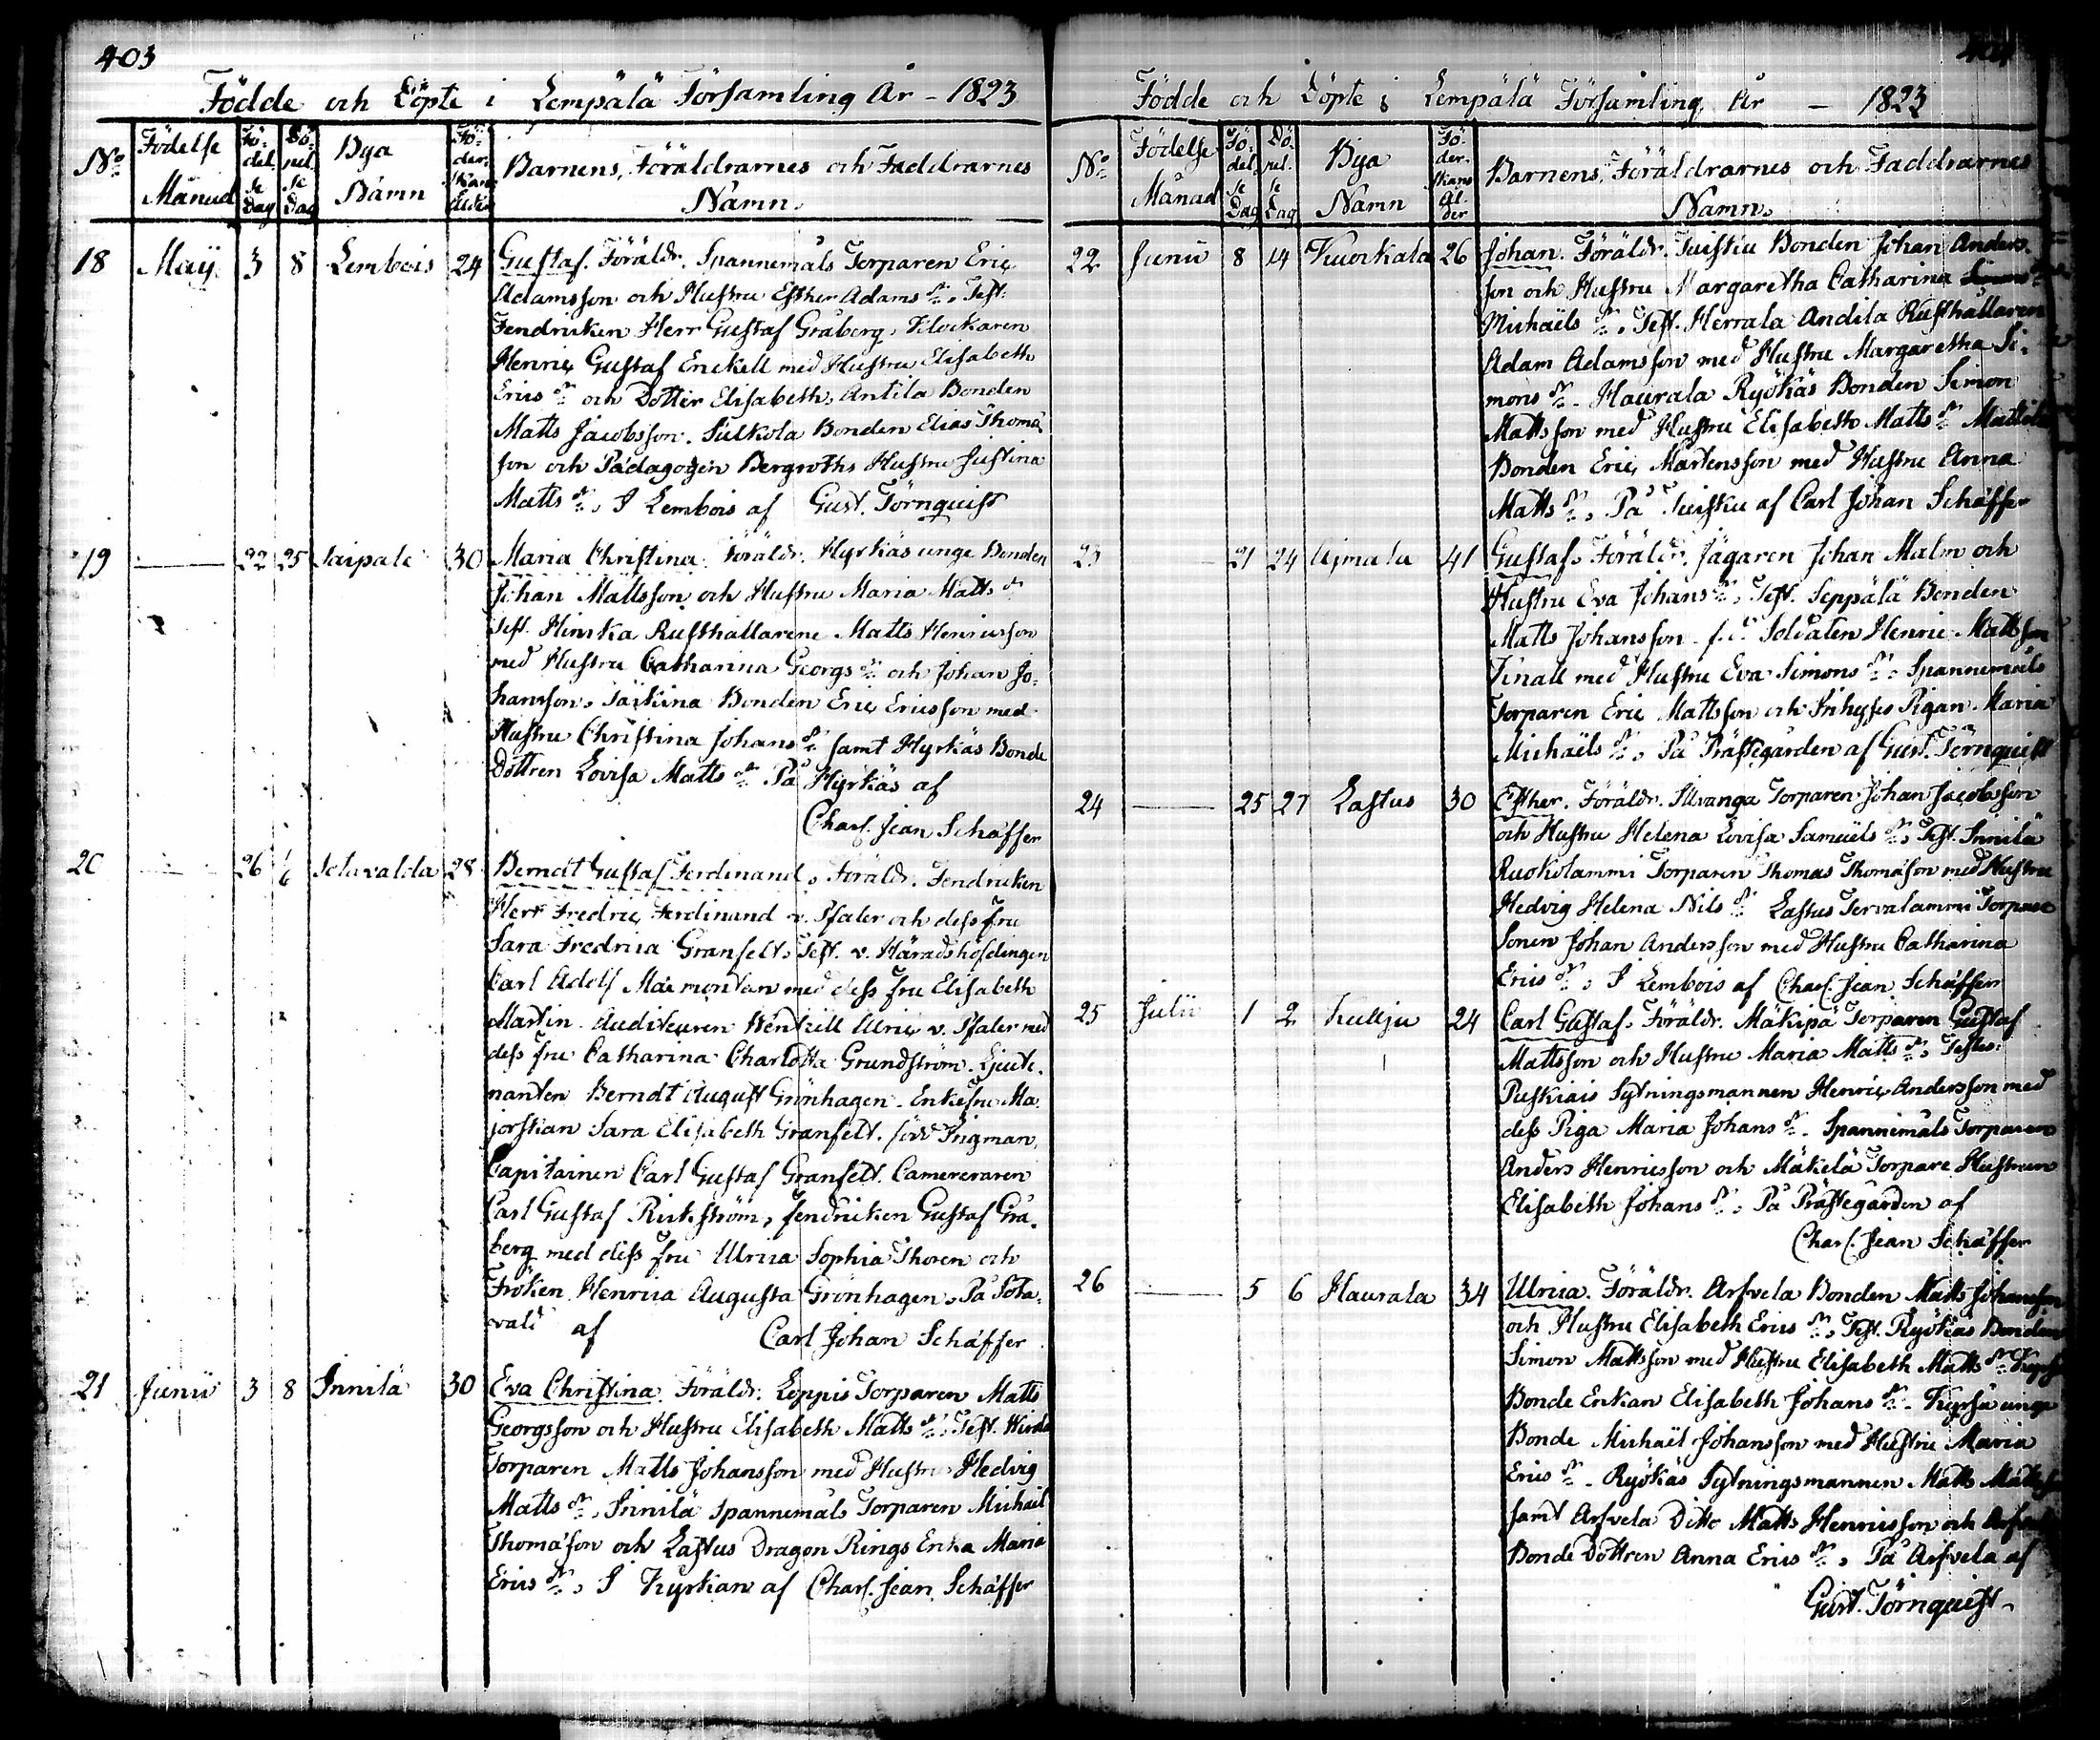 403
Födde och Döpte i Lempälä Församling År - 1823
No
Födelse Månad
Fö-del-se Dag
Dö-pel-se Dag
Bya Namn
Fö-der-skans Ålder
Barnens, Föräldrarnes och Faddrarnes Namn.
18 Maÿ 3 8 Lembois 24 Gustaf. Föräldr. Spannemåls Torparen Eric
Adamsson och Hustru Esther Adams dr. Test.
Fendricken Herr Gustaf Gråberg, Klockaren
Henric Gustaf Enckell med Hustru Elisabeth
Erics dr och Dotter Elisabeth, Antila Bonden
Matts Jacobsson. Sulkola Bonden Elias Thoma
son och Pädagogen Bergroths Hustru Justina
Matts dr. I Lembois af Gust. Törnquist
19 — 22 25 Saipale 30 Maria Christina. Föräldr. Hyrkäs unge Bonden
Johan Mattsson och Hustru Maria Matts dr
Test. Hinska Rusthållarene Matts Henricsson
med Hustru Catharina Georgs dr och Johan Jo-
hansson, Täikinä Bonden Eric Ericsson med
Hustru Christina Johans dr samt Hyrkäs Bonde
Dottren Lovisa Matts dr På Hyrkäs af
Charl. Jean Schäffer
20 — 26 1/6 Sotavalda 28 Berndt Gustaf Ferdinand, Föräldr. Fendricken
Herr Fredric Ferdinand v. Pfaler och dess fru
Sara Fredrica Granfelt, Test. v. Häradshöfdingen
Carl Adolf Maxmontan med dess fru Elisabeth
Martin. Auditeuren Wendell Ulric v. Pfaler med
dess fru Catharina Charlotta Grundström. Ljeute-
nanten Berndt August Grönhagen. Enkefru Ma-
jorskan Sara Elisabeth Granfelt. född Ingman,
Capitainen Carl Gustaf Granfelt. Camereraren
Carl Gustaf Rickström, fendricken Gustaf Grå-
berg med dess fru Ulrica Sophia Thoren och
Fröken Henrica Augusta Grönhagen, På Sota-
vald af Carl Johan Schäffer
21 Junii 3 8 Innilä 30 Eva Christina. Föräldr. Loppis Torparen Matts
Georgsson och Hustru Elisabeth Matts dr. Test.
Torparen Matts Johansson med Hustru Hedvig
Matts dr, Innilä Spannemåls Torparen Michaël
Thomäson och Lastus Dragon Rings Enka Maria
Erics dr, I Kyrkian af Charl. Jean Schäffer
404
Födde och Döpte i Lempälä Församling, År - 1823
No
Födelse Månad
Fö-del-se Dag
Dö-pel-se Dag
Bya Namn
Fö-der-skans Ål-der
Barnens, Föräldrarnes och Faddrarnes Namn.
22 Junii 8 14 Kuorkala 26 Johan. Föräldr. Tuisku Bonden Johan Anders-
son och Hustru Margaretha Catharina
Michaëls dr, Test. Herrala Andila Rusthållaren
Adam Adamsson med Hustru Margaretha Si-
mons dr. Haurala Ryökäs Bonden Simon
Mattsson med Hustru Elisabeth Matts dr Mattila
Bonden Eric Mårtensson med Hustru Anna
Matts dr, På Tuisku af Carl Johan Schäffer
23 21 24 Ajmala 41 Gustaf. Föräldr. Jägaren Johan Malm och
Hustru Eva Johans dr, Test. Seppälä Bonden
Matts Johansson. f.d. Soldaten Henric Mattsson
Finall med Hustru Eva Simons dr. Spannemåls
Torparen Eric Mattsson och Inhyses Pigan Maria
Michaëls dr, På Prästegården af Gust. Törnquist
24 — 25 27 Lastus 30 Esther. Föräldr. Silvanga Torparen Johan Jacobsson
och Hustru Helena Lovisa Samuels dr, Test. Innilä
Ruokolammi Torparen Thomas Thomäson med Hustru
Hedvig Helena Nils dr Lastus Tervalammi Torpare
Sonen Johan Andersson med Hustru Catharina
Erics dr, I Lembois af Charl. Jean Schäffer
25 Julii 1 2 Kulju 24 Carl Gustaf. Föräldr. Mäkipä Torparen Gustaf
Mattsson och Hustru Maria Matts dr, Testes:
Puskiais Sytningsmannen Henric Andersson med
dess Piga Maria Johans dr. Spannemåls Torparen
Anders Henricsson och Mäkelä Torpare Hustrun
Elisabeth Johans dr, På Prästegården af
Charl. Jean Schäffer
26 — 5 6 Haurala 34 Ulrica. Föräldr. Arfvela Bonden Matts Johansson
och Hustru Elisabeth Erics dr, Test. Ryökäs Bonden
Simon Mattsson med Hustru Elisabeth Matts dr
Bonde Enkan Elisabeth Johans dr. Kyrsä unge
Bonde Michaël Johansson med Hustru Maria
Erics dr. Ryökäs Sytningsmannen Matts
samt Arfvela Ditto Matts Henricsson och
Bonde Dottren Anna Erics dr, På Arfvela af
Gust. Törnquist